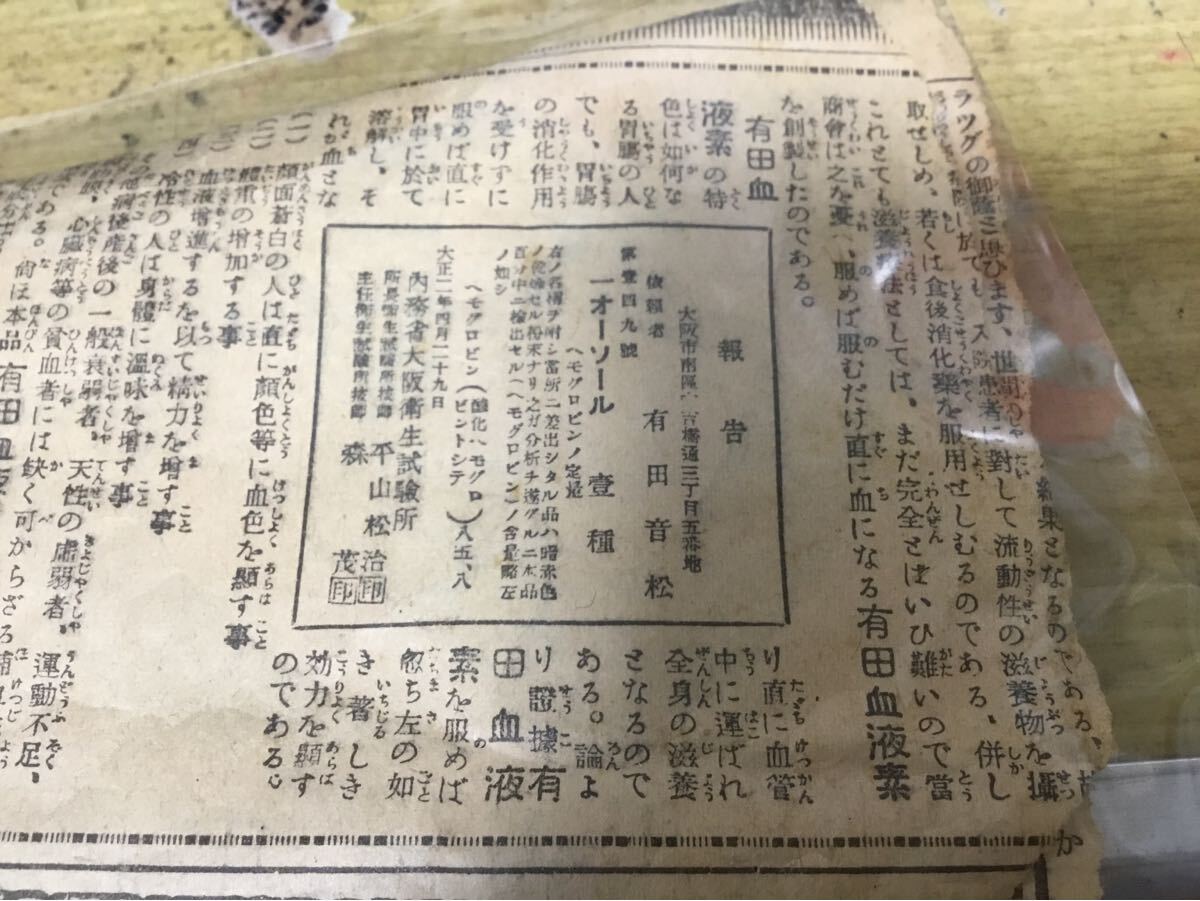 結果となるのである、
ラツグの御蔭に依ひます、世間の患者に對して流動性の滋養物を攝
取せしめ、若くは食後消化薬を服用せしむるのである、併し
これとても滋養療法としては、まだ完全とはいひ難いので當
商會は之を憂へ、服めば服むだけ直に血になる有田血液素
を創製したのである。
有田血
液素の特
色は如何な
る胃腸の人
でも、胃腸
の消化作用
を受けずに
服めば直に
胃中に於て
溶解し、そ
れが血さな
報告
大阪市南區 橋通三丁目五番地
依頼者 有田音松
第壹四九號
一オーソール 壹種
ヘモグロビンノ定量
右ノ名稱ヲ附シ當所ニ差出シタル品ハ暗赤色
ノ乾燥セル粉末ナリ之ガ分析ヲ遂グルニ本品
百分中ニ検出セルヘモグロビンノ含量略左
ノ如シ
ヘモグロビン(酸化ヘモグロビントシテ)八五、八
大正二年四月二十九日
內務省大阪衛生試驗所
所長衛生試驗所技師 平山松治印
主任衛生試驗所技師 森 茂印
り直に血管
中に運ばれ
全身の滋養
となるので
ある。論よ
り證據有
田血液
素を服めば
忽ち左の如
き著しき
効力を顯す
のである。
(一)顏面蒼白の人は直に顏色等に血色を顯す事
(二)體重の增加する事
血液增進するを以て精力を增す事
(四)冷性の人は身體に溫味を增す事
の他病後產後の一般衰弱者。天性の虛弱者。運動不足。
心臟病等の貧血者には缺く可からざる補血
である。尙ほ本品有田血液